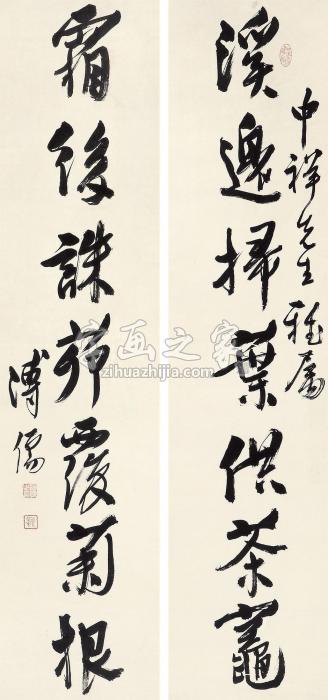 中祥先生雅屬
溪邊掃葉供茶竈
霜後誅茆覆菊根
溥儒
书画之家
zihuazhijia.com